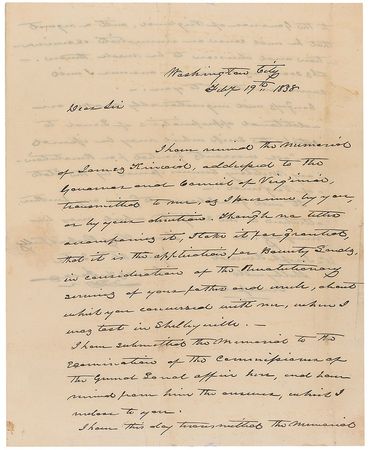 Washington City
Feby 19th 1838
Dear Sir
I have recieved the Memorial
of James Kincaid, addressed to the
Governor and Council of Virginia,
transmitted to me, as I presume by you,
or by your direction. Though no letter
accompanies it, I take it for granted
that it is the application for Bounty Lands,
in consideration of the Revolutionary
services of your father and uncle, about
which you conversed with me, when I
was last in Shelbyville. —
I have submitted the Memorial to the
examination of the Commissioner of
the General Land office here, and have
recieved from him the answer, which I
inclose to you.
I have this day transmitted the Memorial